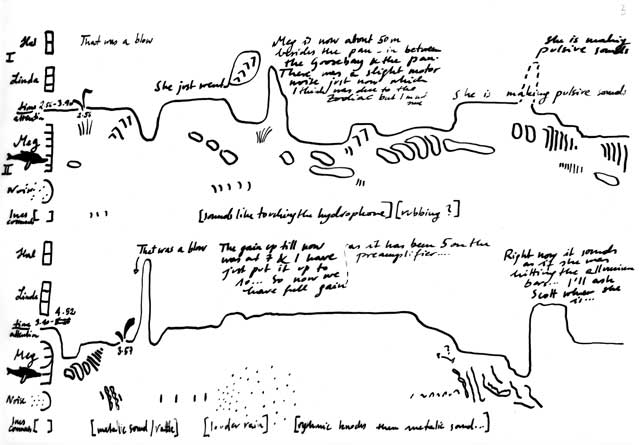 I
Hal
That was a blow
Linda
time
2.52-3.40
attention
2.56
She just went
Meg is now about 50m
besides the pan - in between
the Goosebay & the pan.
There was a slight motor
noise just now which
I think was due to the
Zodiac but I'm not
sure
She is making
pulsive sounds
She is making pulsive sounds
Meg
II
Noise
Ines [
comments
[sounds like touching the hydrophone] [rubbing?]
Hal
That was a blow
The gain up till now
was at 7 & I have
just put it up to
10... So now we
have full gain
as it has been 5 on the
preamplifier...
Right now it sounds
as if she was
hitting the aluminum
bar... I'll ask
Scott where she
is...
Linda
time
3.40-
4.52
attention
3.57
?
Meg
Noise
Ines
comments [ ]
[metalic sound/rattle]
[louder rain]
[rythmic knocks then metalic sound...]